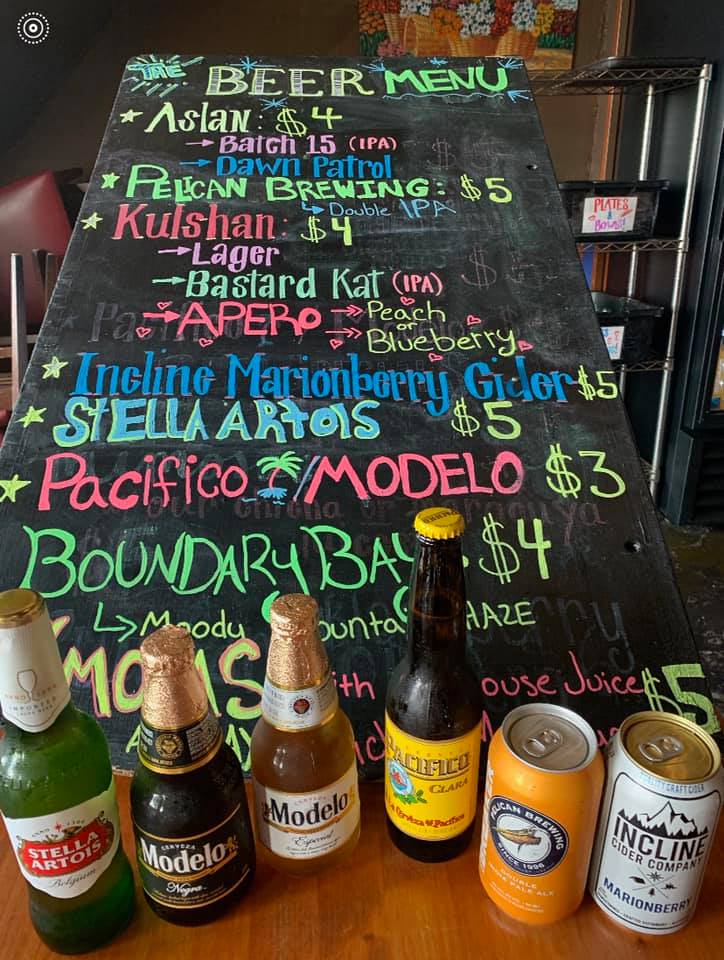 THE BEER MENU
Aslan: $4
Batch 15 (IPA)
Dawn Patrol
PELICAN BREWING: $5
Double IPA
Kulshan: $4
Lager
Bastard Kat (IPA)
APERO Peach
or
Blueberry
Incline Marionberry Cider $5
STELLA ARTOIS $5
Pacifico / MODELO $3
BOUNDARY BAY $4
Moody HAZE
ouse Juice $5
PLATES
&
BOWLS!
IMPORTED
STELLA
ARTOIS
Belgium
CERVEZA
Modelo
Negra
CERVEZA
Modelo
Especial
PACIFICO
CLARA
PELICAN BREWING
SINCE 1996
DOUBLE
INDIA PALE ALE
INCLINE
CIDER COMPANY
MARIONBERRY